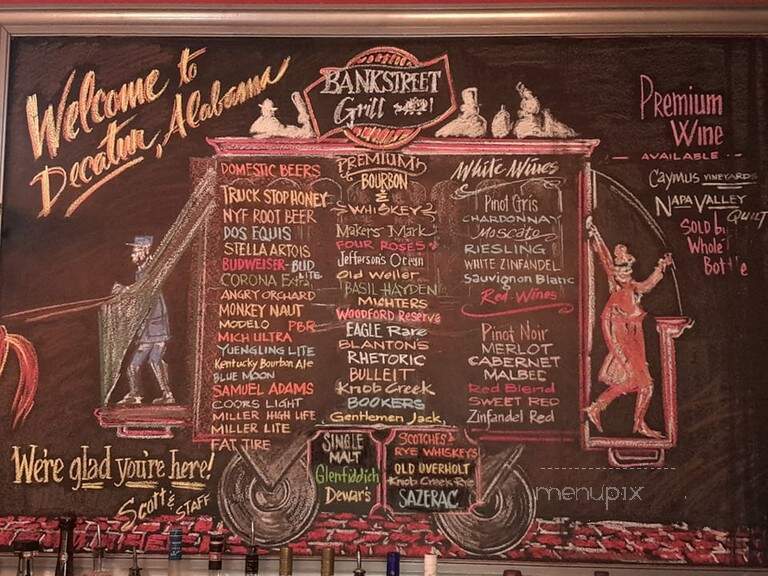 Welcome to
Decatur, Alabama
BANKSTREET
Grill
DOMESTIC BEERS
TRUCK STOP HONEY
NYF ROOT BEER
DOS EQUIS
STELLA ARTOIS
BUDWEISER - BUD LITE
CORONA Extra
ANGRY ORCHARD
MONKEY NAUT
MODELO PBR
MICH ULTRA
YUENGLING LITE
Kentucky Bourbon Ale
BLUE MOON
SAMUEL ADAMS
COORS LIGHT
MILLER HIGH LIFE
MILLER LITE
FAT TIRE
PREMIUM
BOURBON
&
WHISKEY
Makers Mark
FOUR ROSES
Jefferson's Ocean
Old Weller
BASIL HAYDEN
MICHTERS
WOODFORD Reserve
EAGLE Rare
BLANTON'S
RHETORIC
BULLEIT
Knob Creek
BOOKERS
Gentlemen Jack
White Wines
Pinot Gris
CHARDONNAY
Moscato
RIESLING
WHITE ZINFANDEL
Sauvignon Blanc
Red Wines
Pinot Noir
MERLOT
CABERNET
MALBEC
Red Blend
SWEET RED
Zinfandel Red
SINGLE
MALT
Glenfiddich
Dewar's
SCOTCHES
RYE WHISKEYS
OLD OVERHOLT
Knob Creek Rye
SAZERAC
Premium
Wine
- AVAILABLE -
CAYMUS VINEYARDS
NAPA VALLEY
QUILT
Sold by
Whole
Bottle
We're glad you're here!
Scott & STAFF
menupix